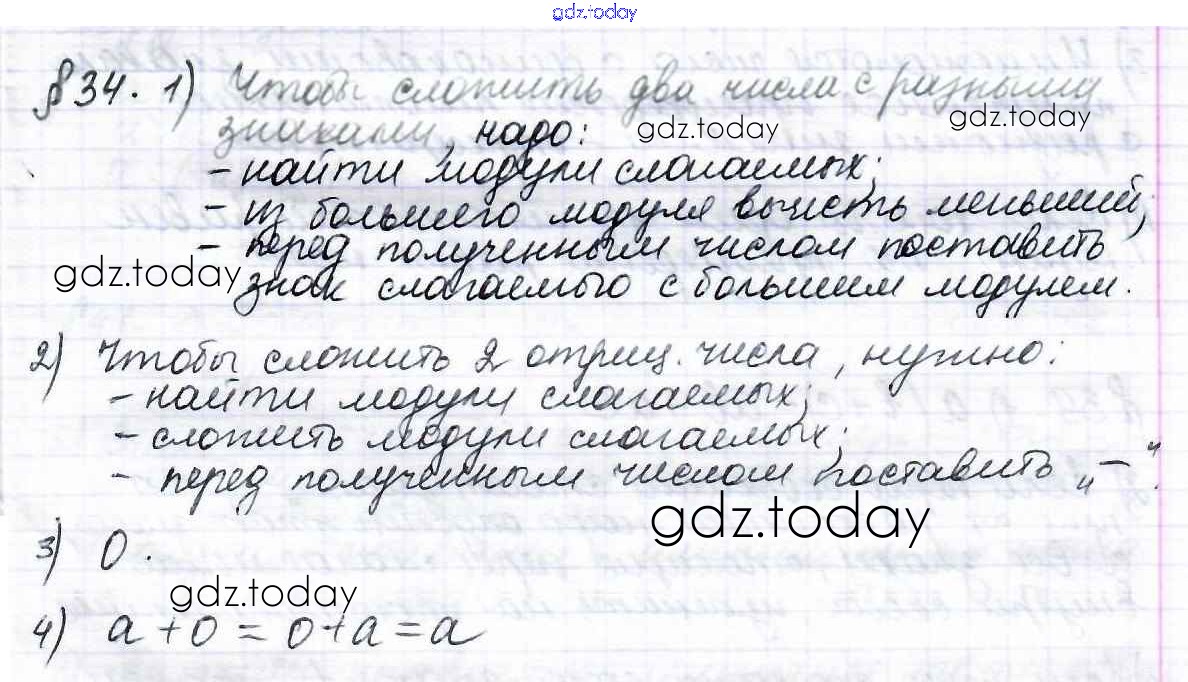 gdz.today
§34. 1) Чтобы сложить два числа с разными
знаками, надо:
gdz.today
gdz.today
- найти модули слагаемых;
- из большего модуля вычесть меньший;
- перед полученным числом поставить
gdz.today
знак слагаемого с большим модулем.
2) Чтобы сложить 2 отриц. числа, нужно:
- найти модули слагаемых;
- сложить модули слагаемых;
- перед полученным числом поставить „–“.
gdz.today
3) 0.
gdz.today
4) a + 0 = 0 + a = a